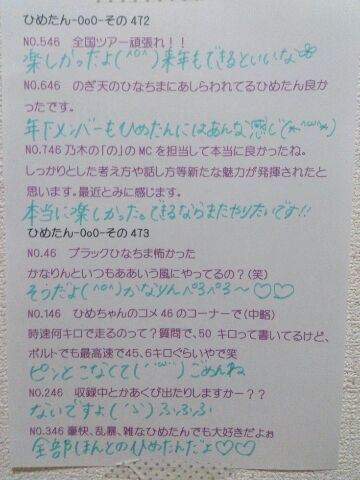 ひめたん-OoO-その 472
NO.546　全国ツアー頑張れ！！
楽しかったよ(^o^)来年もできるといいな
NO.646　のぎ天のひなちまにあしらわれてるひめたん良か
ったです。
年下メンバーもひめたんにはあんな感じ
NO.746 乃木の「の」の MC を担当して本当に良かったね。
しっかりとした考え方や話し方等新たな魅力が発揮されたと
思います。最近とみに感じます。
本当に楽しかった。できるならまたやりたいです!!
ひめたん-OoO-その 473
NO.46　ブラックひなちま怖かった
かなりんといつもああいう風にやってるの？(笑)
そうだよ(^o^)かなりんペろペろ〜♡♡
NO.146　ひめちゃんのコメ 46 のコーナーで(中略)
時速何キロで走るのって？質問で、50 キロって書いてるけど、
ボルトでも最高速で45、6キロぐらいやで笑
ピンとこなくて(´･ω･`)ごめんね
NO.246　収録中とかあくび出たりしますかー？？
ないですよ(´ｰ`)ふふふ
NO.346 豪快、乱暴、雑なひめたんでも大好きだよぉ
全部ほんとのひめたんだよ♡♡